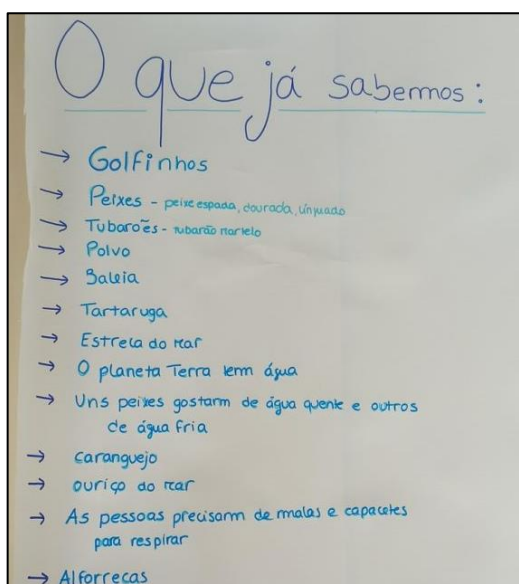 O que já sabemos:
→ Golfinhos
→ Peixes - peixe espada, dourada, linguado
→ Tubarões - tubarão martelo
→ Polvo
→ Baleia
→ Tartaruga
→ Estrela do mar
→ O planeta Terra tem água
→ Uns peixes gostam de água quente e outros
de água fria
→ Caranguejo
→ Ouriço do mar
→ As pessoas precisam de malas e capacetes
para respirar
→ Alforrecas